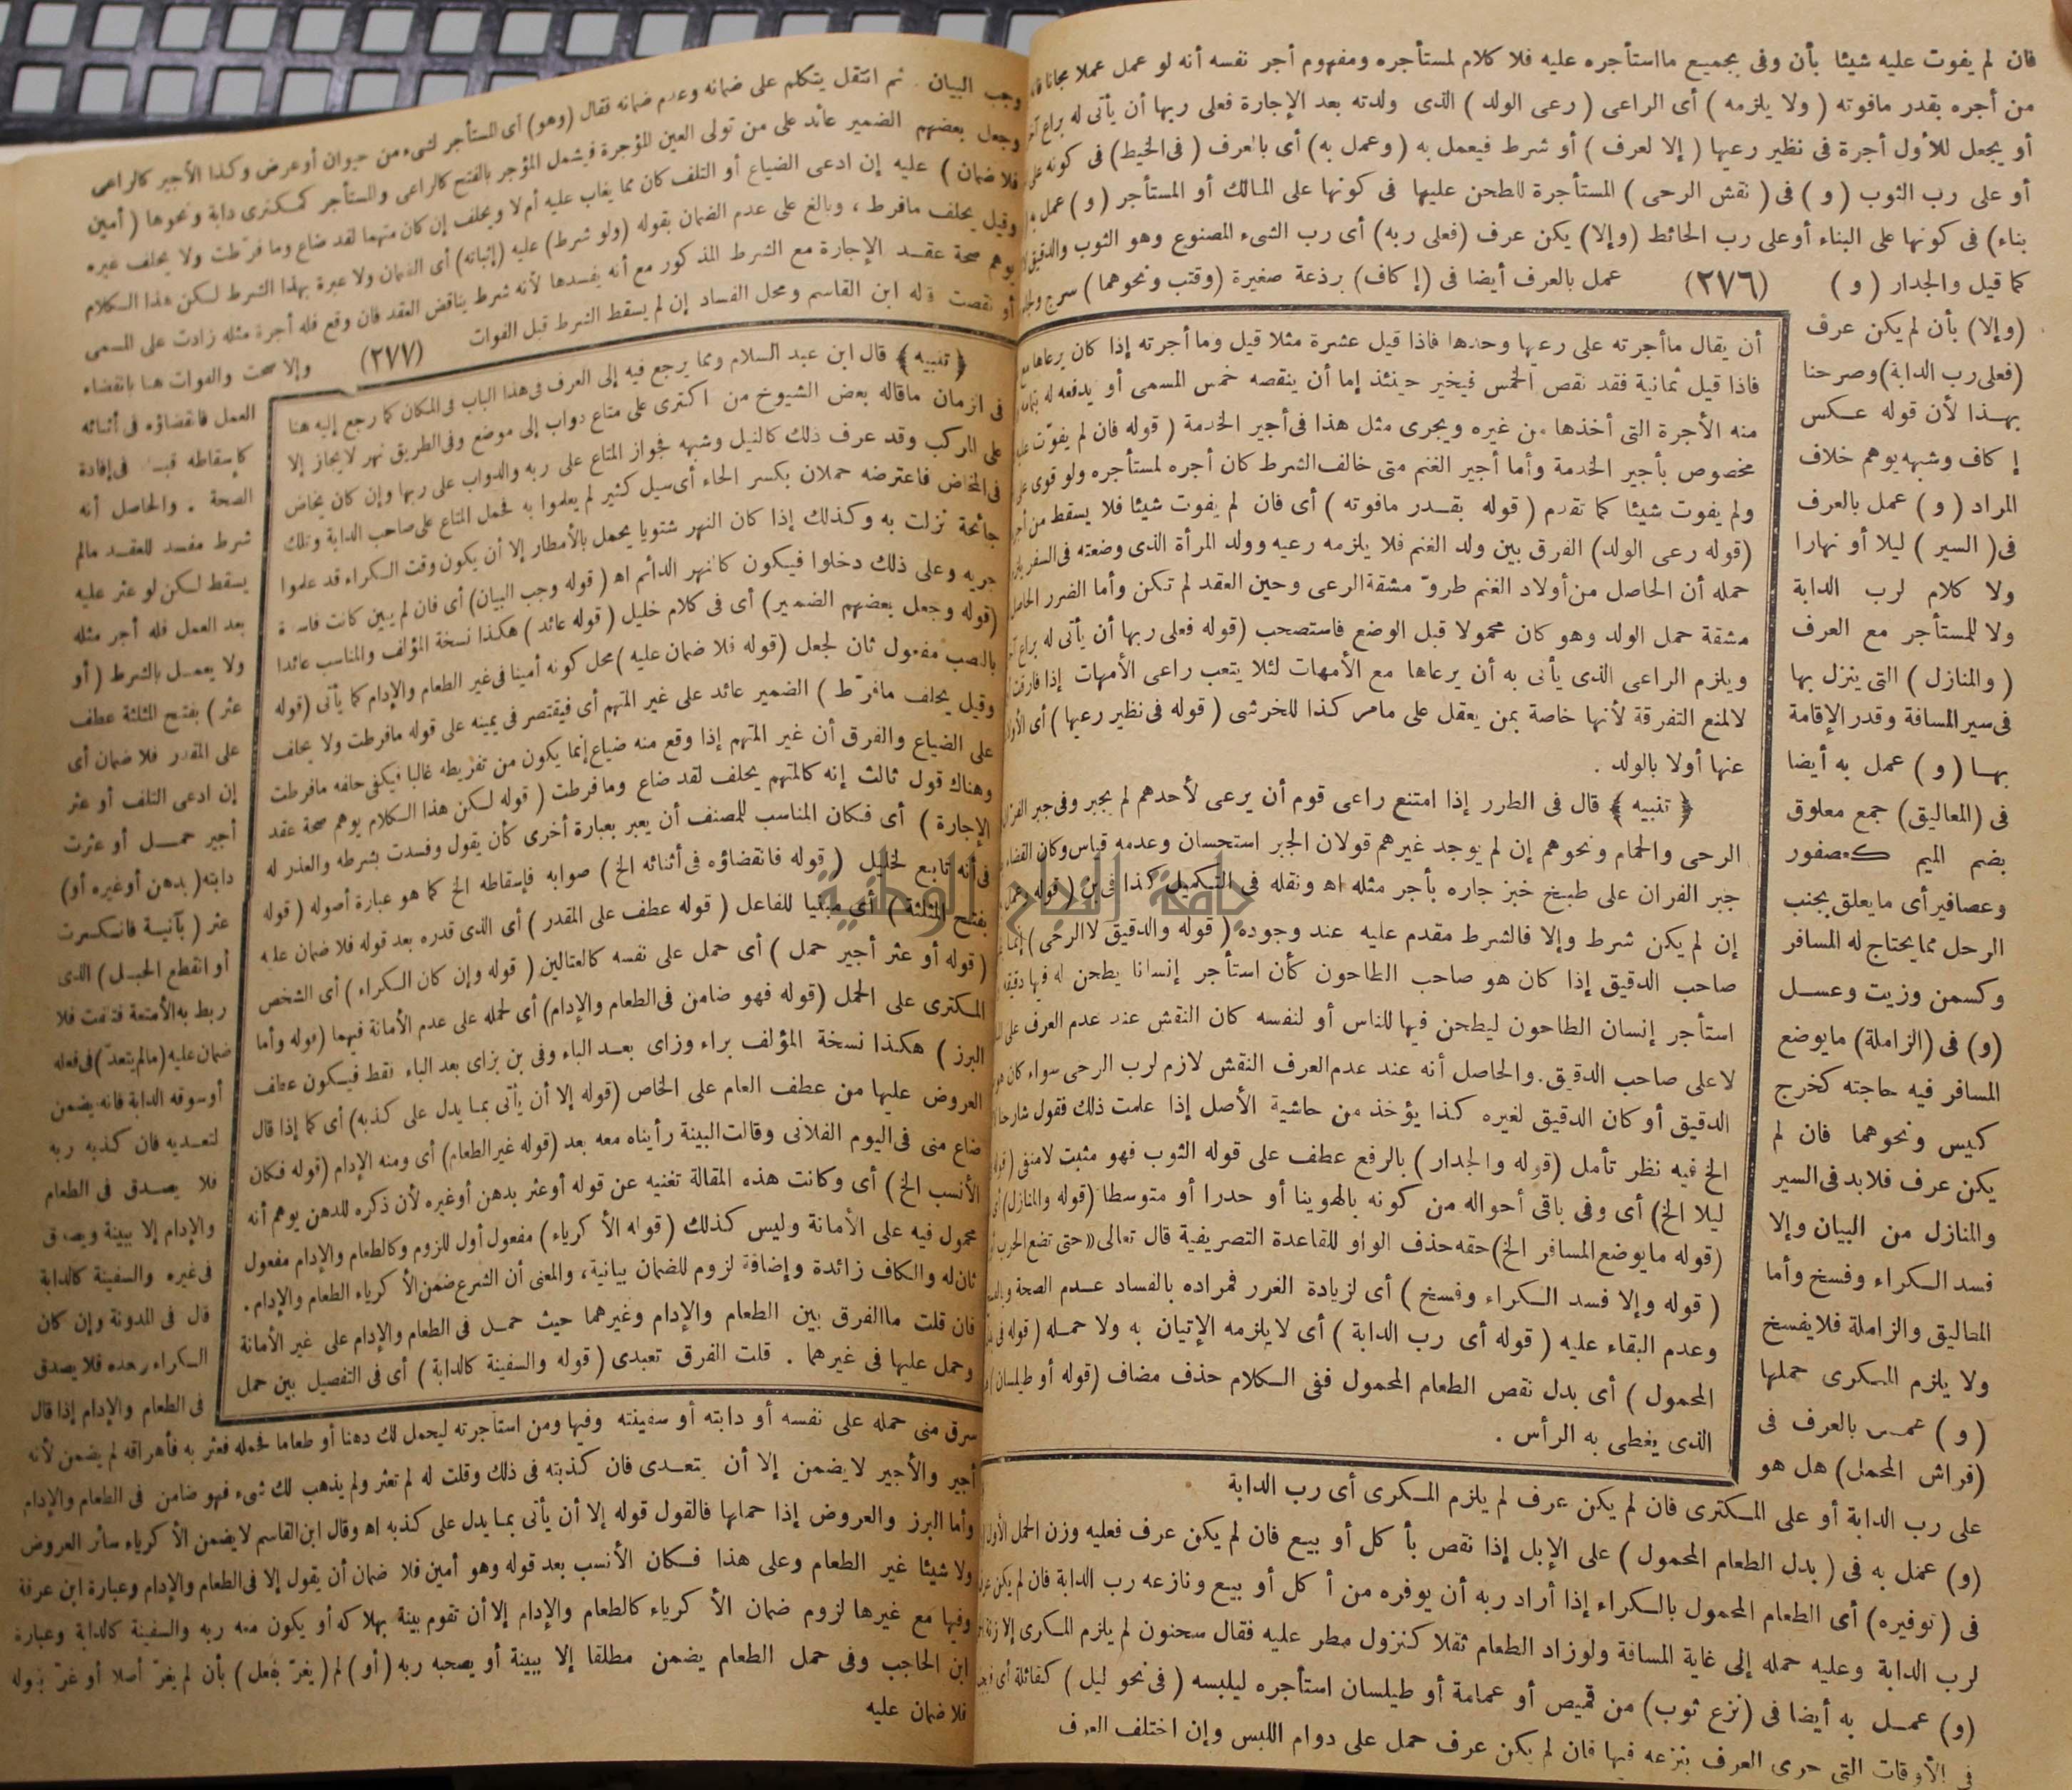 فان لم يفوت عليه شيئا بأن وفى بجميع مااستأجره عليه فلا كلام لمستأجره ومفهوم أجر نفسه أنه لو عمل عملا مجانا
من أجره بقدر مافوته ( ولا يلزمه ) أى الراعى ( رعى الولد ) الذى ولدته بعد الإجارة فعلى ربها أن يأتى له براع
أو يجعل للأول أجرة فى نظير رعيها ( إلا لعرف ) أو شرط فيعمل به ( وعمل به ) أى بالعرف ( فى الخيط ) فى كونه
أو على رب الثوب ( و ) فى ( نقش الرحى ) المستأجرة للطحن عليها فى كونها على المالك أو المستأجر ( و ) عمل
بناء) فى كونها على البناء أوعلى رب الحائط (وإلا) يكن عرف (فعلى ربه) أى رب الشىء المصنوع وهو الثوب والدقيق
كما قيل والجدار ( و ) (٢٧٦) عمل بالعرف أيضا فى (إكاف) برذعة صغيرة (وقتب ونحوهما) سرج
(وإلا) بأن لم يكن عرف
(فعلى رب الدابة) وصرحنا
بهذا لأن قوله عكس
إكاف وشبهه يوهم خلاف
المراد ( و ) عمل بالعرف
فى ( السير ) ليلا أو نهارا
ولا كلام لرب الدابة
ولا للمستأجر مع العرف
( والمنازل ) التى ينزل بها
فى سير المسافة وقدر الإقامة
بها ( و ) عمل به أيضا
فى (المعاليق) جمع معلوق
بضم الميم كعصفور
وعصافير أى مايعلق بجنب
الرحل مما يحتاج له المسافر
وكسمن وزيت وعسل
(و) فى (الزاملة) مايوضع
المسافر فيه حاجته كخرج
كيس ونحوهما فان لم
يكن عرف فلابد فى السير
والمنازل من البيان وإلا
فسد الكراء وفسخ وأما
المعاليق والزاملة فلا يفسخ
ولا يلزم المكرى حملها
( و ) عمل بالعرف فى
(فراش المحمل) هل هو
أن يقال ماأجرته على رعيها وحدها فاذا قيل عشرة مثلا قيل وما أجرته إذا كان يرعاها مع
فاذا قيل ثمانية فقد نقص الخمس فيخير حينئذ إما أن ينقصه خمس المسمى أو يدفعه له بتمامه
منه الأجرة التى أخذها من غيره ويجرى مثل هذا فى أجير الخدمة ( قوله فان لم يفوّت
مخصوص بأجير الخدمة وأما أجير الغنم متى خالف الشرط كان أجره لمستأجره ولو قوى على
ولم يفوت شيئا كما تقدم ( قوله بقدر مافوته ) أى فان لم يفوت شيئا فلا يسقط من
(قوله رعى الولد) الفرق بين ولد الغنم فلا يلزمه رعيه وولد المرأة الذى وضعته فى السفر
حمله أن الحاصل من أولاد الغنم طروّ مشقة الرعى وحين العقد لم تكن وأما الضرر الحاصل
مشقة حمل الولد وهو كان محمولا قبل الوضع فاستصحب (قوله فعلى ربها أن يأتى له براع
ويلزم الراعى الذى يأتى به أن يرعاها مع الأمهات لئلا يتعب راعى الأمهات إذا فارقت
لالمنع التفرقة لأنها خاصة بمن يعقل على مامر كذا للخرشى ( قوله فى نظير رعيها ) أى
عنها أولا بالولد .
﴿ تنبيه ﴾ قال فى الطرر إذا امتنع راعى قوم أن يرعى لأحدهم لم يجبر وفى جبر
الرحى والحمام ونحوهم إن لم يوجد غيرهم قولان الجبر استحسان وعدمه قياس وكان القضاء
جبر الفران على طبخ خبز جاره بأجر مثله اه ونقله فى التكميل كذا فى بن ( قوله
إن لم يكن شرط وإلا فالشرط مقدم عليه عند وجوده ( قوله والدقيق لاالرحى )
صاحب الدقيق إذا كان هو صاحب الطاحون كأن استأجر إنسانا يطحن له فيها
استأجر إنسان الطاحون ليطحن فيها للناس أو لنفسه كان النقش عند عدم العرف على
لاعلى صاحب الدقيق. والحاصل أنه عند عدم العرف النقش لازم لرب الرحى سواء كان
الدقيق أو كان الدقيق لغيره كذا يؤخذ من حاشية الأصل إذا علمت ذلك فقول
الخ فيه نظر تأمل (قوله والجدار ) بالرفع عطف على قوله الثوب فهو مثبت لامنفى
ليلا الخ) أى وفى باقى أحواله من كونه بالهوينا أو حدرا أو متوسطا (قوله والمنازل)
(قوله مايوضع المسافر الخ) حقه حذف الواو للقاعدة التصريفية قال تعالى «حتى تضع الحرب
( قوله وإلا فسد الكراء وفسخ ) أى لزيادة الغرر فمراده بالفساد عدم الصحة
وعدم البقاء عليه ( قوله أى رب الدابة ) أى لا يلزمه الإتيان به ولا حمله
المحمول ) أى بدل نقص الطعام المحمول ففى الكلام حذف مضاف (قوله أو طيلسان)
الذى يغطى به الرأس .
على رب الدابة أو على المكترى فان لم يكن عرف لم يلزم المكرى أى رب الدابة
(و) عمل به فى ( بدل الطعام المحمول ) على الإبل إذا نقص بأكل أو بيع فان لم يكن عرف فعليه وزن الحمل الأول
فى (توفيره) أى الطعام المحمول بالكراء إذا أراد ربه أن يوفره من أكل أو بيع ونازعه رب الدابة فان لم يكن
لرب الدابة وعليه حمله إلى غاية المسافة ولوزاد الطعام ثقلا كنزول مطر عليه فقال سحنون لم يلزم المكرى إلا
(و) عمل به أيضا فى (نزع ثوب) من قميص أو عمامة أو طيلسان استأجره ليلبسه ( فى نحو ليل ) كقائلة
فى الأوقات التى جرى العرف بنزعه فيها فان لم يكن عرف حمل على دوام اللبس وإن اختلف العرف
وجب البيان . ثم انتقل يتكلم على ضمانه وعدم ضمانه فقال (وهو) أى المستأجر لشىء من حيوان أو عرض وكذا الأجير كالراعى
وجعل بعضهم الضمير عائد على من تولى العين المؤجرة فيشمل المؤجر بالفتح كالراعى والمستأجر كمكترى دابة ونحوها ( أمين
فلا ضمان ) عليه إن ادعى الضياع أو التلف كان مما يغاب عليه أم لا ويحلف إن كان متهما لقد ضاع وما فرّطت ولا يحلف غيره
وقيل يحلف مافرط ، وبالغ على عدم الضمان بقوله (ولو شرط) عليه (إثباته) أى الضمان ولا عبرة بهذا الشرط لكن هذا الكلام
يوهم صحة عقد الإجارة مع الشرط المذكور مع أنه يفسدها لأنه شرط يناقض العقد فان وقع فله أجرة مثله زادت على المسمى
أو نقصت قاله ابن القاسم ومحل الفساد إن لم يسقط الشرط قبل الفوات (٢٧٧) وإلا صحت والفوات هنا بانقضاء
العمل فانقضاؤه فى أثنائه
كإسقاطه قبله فى إفادة
الصحة . والحاصل أنه
شرط مفسد للعقد مالم
يسقط لكن لو عثر عليه
بعد العمل فله أجر مثله
ولا يعمل بالشرط ( أو
عثر ) بفتح المثلثة عطف
على المقدر فلا ضمان أى
إن ادعى التلف أو عثر
أجير حمل أو عثرت
دابته ( بدهن أوغيره أو)
عثر ( بآنية فانكسرت
أو انقطع الحبل ) الذى
ربط به الأمتعة فتلفت فلا
ضمان عليه (مالم يتعدّ) فى فعله
أوسوقه الدابة فانه يضمن
لتعديه فان كذبه ربه
فلا يصدق فى الطعام
والإدام إلا ببينة ويصدق
فى غيره والسفينة كالدابة
قال فى المدونة وإن كان
الكراء وحده فلا يصدق
فى الطعام والإدام إذا قال
﴿ تنبيه ﴾ قال ابن عبد السلام ومما يرجع فيه إلى العرف فى هذا الباب فى المكان كما رجع إليه هنا
فى الزمان ماقاله بعض الشيوخ من اكترى على متاع دواب إلى موضع وفى الطريق نهر لا يجاز إلا
على المركب وقد عرف ذلك كالنيل وشبهه فجواز المتاع على ربه والدواب على ربها وإن كان يخاض
فى المخاض فاعترضه حملان بكسر الحاء أى سيل كثير لم يعلموا به فحمل المتاع على صاحب الدابة وتلك
جائحة نزلت به وكذلك إذا كان النهر شتويا يحمل بالأمطار إلا أن يكون وقت الكراء قد علموا
جريه وعلى ذلك دخلوا فيكون كالنهر الدائم اه ( قوله وجب البيان) أى فان لم يبين كانت فاسدة
(قوله وجعل بعضهم الضمير) أى فى كلام خليل ( قوله عائد ) هكذا نسخة المؤلف والمناسب عائدا
بالنصب مفعول ثان لجعل (قوله فلا ضمان عليه ) محل كونه أمينا فى غير الطعام والإدام كما يأتى (قوله
وقيل يحلف مافرّط ) الضمير عائد على غير المتهم أى فيقتصر فى يمينه على قوله مافرطت ولا يحلف
على الضياع والفرق أن غير المتهم إذا وقع منه ضياع إنما يكون من تفريطه غالبا فيكفى حلفه مافرطت
وهناك قول ثالث إنه كالمتهم يحلف لقد ضاع ومافرطت ( قوله لكن هذا الكلام يوهم صحة عقد
الإجارة ) أى فكان المناسب للمصنف أن يعبر بعبارة أخرى كأن يقول وفسدت بشرطه والعذر له
فى أنه تابع لخليل ( قوله فانقضاؤه فى أثنائه الخ ) صوابه فإسقاطه الخ كما هو عبارة أصوله ( قوله
بفتح المثلثة ) أى مبنيا للفاعل ( قوله عطف على المقدر ) أى الذى قدره بعد قوله فلا ضمان عليه
( قوله أو عثر أجير حمل ) أى حمل على نفسه كالعتالين ( قوله وإن كان الكراء ) أى الشخص
المكترى على الحمل (قوله فهو ضامن فى الطعام والإدام) أى لحمله على عدم الأمانة فيهما (قوله وأما
البرز ) هكذا نسخة المؤلف براء وزاى بعد الباء وفى بن بزاى بعد الباء نقط فيكون عطف
العروض عليها من عطف العام على الخاص (قوله إلا أن يأتى بما يدل على كذبه) أى كما إذا قال
ضاع منى فى اليوم الفلانى وقالت البينة رأيناه معه بعد (قوله غير الطعام) أى ومنه الإدام (قوله فكان
الأنسب الخ) أى وكانت هذه المقالة تغنيه عن قوله أوعثر بدهن أوغيره لأن ذكره للدهن يوهم أنه
محمول فيه على الأمانة وليس كذلك ( قوله الأكرياء ) مفعول أول للزوم وكالطعام والإدام مفعول
ثان له والكاف زائدة وإضافة لزوم للضمان بيانية، والمعنى أن الشرع ضمن الأكرياء الطعام والإدام.
فان قلت ماالفرق بين الطعام والإدام وغيرهما حيث حمل فى الطعام والإدام على غير الأمانة
وحمل عليها فى غيرهما . قلت الفرق تعبدى ( قوله والسفينة كالدابة ) أى فى التفصيل بين حمل
سرق منى حمله على نفسه أو دابته أو سفينته وفيها ومن استأجرته ليحمل لك دهنا أو طعاما فحمله فعثر به فأهراقه لم يضمن لأنه
أجير والأجير لايضمن إلا أن يتعدى فان كذبته فى ذلك وقلت له لم تعثر ولم يذهب لك شىء فهو ضامن فى الطعام والإدام
وأما البرز والعروض إذا حملها فالقول قوله إلا أن يأتى بما يدل على كذبه اه وقال ابن القاسم لايضمن الأكرياء سائر العروض
ولا شيئا غير الطعام وعلى هذا فكان الأنسب بعد قوله وهو أمين فلا ضمان أن يقول إلا فى الطعام والإدام وعبارة ابن عرفة
وفيها مع غيرها لزوم ضمان الأكرياء كالطعام والإدام إلا أن تقوم بينة بهلاكه أو يكون معه ربه والسفينة كالدابة وعبارة
ابن الحاجب وفى حمل الطعام يضمن مطلقا إلا ببينة أو يصحبه ربه ( أو ) لم ( يغرّ بفعل ) بأن لم يغرّ أصلا أو غرّ بقوله
فلا ضمان عليه
جامعة النجاح الوطنية